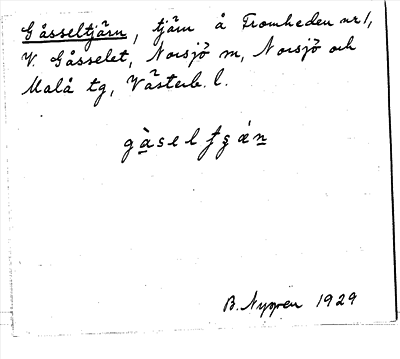 Gåsseltjärn, tjärn å Fromheden nr 1,
V. Gåsselet, Norsjö sn, Norsjö och
Malå tg, Västerb. l.
gàselʈʂǽn
B. Nygren 1929